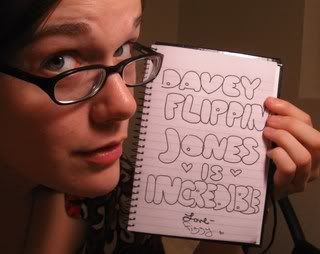 DAVEY
FLIPPIN
JONES
IS
INCREDIBLE
Love-